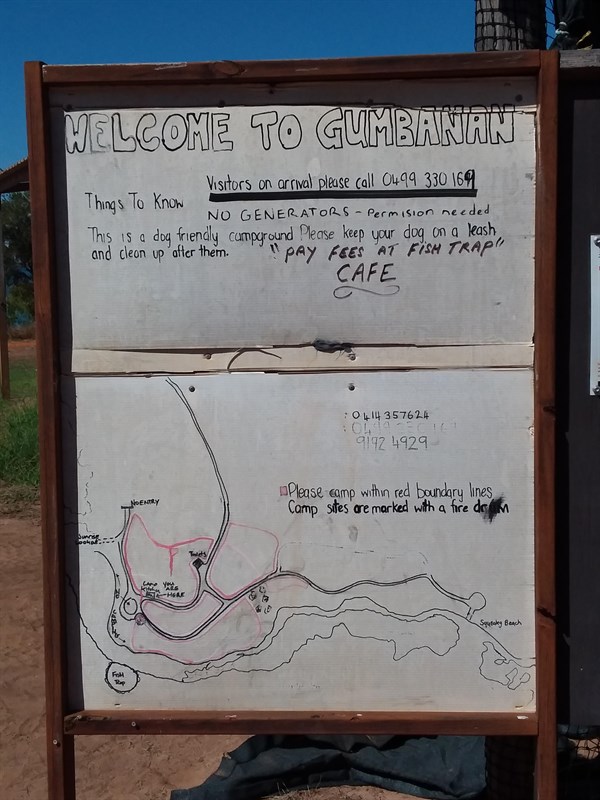 WELCOME TO GUMBANAN
Visitors on arrival please call 0499 330 169
Things To Know
NO GENERATORS - Permision needed
This is a dog friendly campground Please keep your dog on a leash
and clean up after them.
"PAY FEES AT FISH TRAP"
CAFE
: 0414 357624
9192 4929
Please camp within red boundary lines
Camp sites are marked with a fire drum
NO ENTRY
Toilets
CAMP YOU
KITCHEN ARE
HERE
Squeaky Beach
Fish
Trap